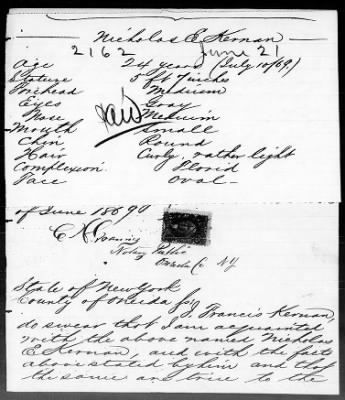 Nicholas E Kernan
2162 June 21
Age 24 years (July 10/69)
Stature 5 ft 7 inches
Forehead Medium
Eyes Gray
Nose Medium
Mouth Small
Chin Round
Hair Curly, rather light
Complexion Florid
Face Oval
of June 1869
Notary Public
Oneida Co NY
State of New York
County of Oneida ss
I Francis Kernan
do swear that I am acquainted
with the above named Nicholas
E Kernan, and with the facts
above stated by him and that
the same are true to the